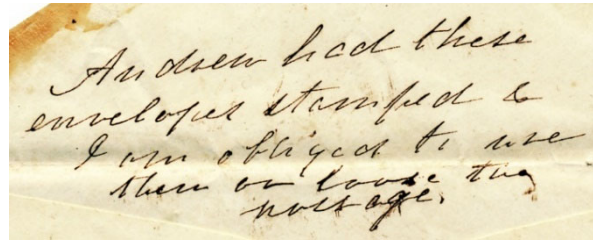 Andrew had these
envelopes stamped &
I am obliged to use
them or loose the
postage.